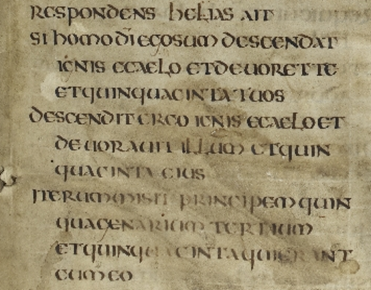 respondens helias ait
si homo dī ego sum descendat
ignis e caelo et deuoret te
et quinquaginta tuos
descendit ergo ignis e caelo et
deuorauit illum et quin
quaginta eius
iterum misit principem quin
quagenarium tertium
et quinquaginta qui erant
cum eo